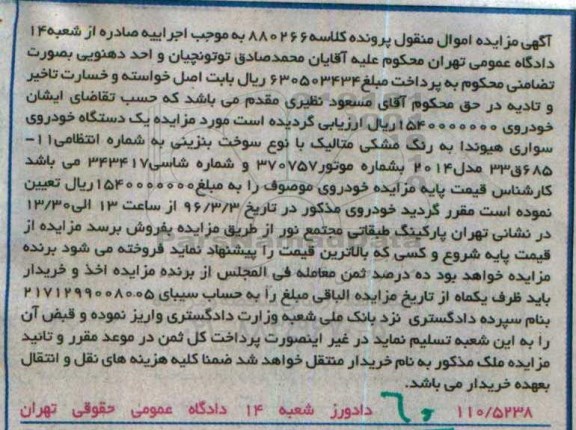 آگهی مزایده اموال منقول پرونده کلاسه ۸۸۰۲۶۶ به موجب اجراییه صادره از شعبه۱۴
دادگاه عمومی تهران محکوم علیه آقایان محمدصادق توتونچیان و احد دهنویی بصورت
تضامنی محکوم به پرداخت مبلغ ۶۳۰۵۰۳۴۳۴ ریال بابت اصل خواسته و خسارت تاخیر
و تادیه در حق محکوم آقای مسعود نظیری مقدم می باشد که حسب تقاضای ایشان
خودروی ۱۵۴۰۰۰۰۰۰۰ریال ارزیابی گردیده است مورد مزایده یک دستگاه خودروی
سواری هیوندا به رنگ مشکی متالیک با نوع سوخت بنزینی به شماره انتظامی۱۱-
۶۸۵ق۳۳ مدل۲۰۱۴ بشماره موتور۳۷۰۷۵۷ و شماره شاسی۳۴۳۴۱۷ می باشد
کارشناس قیمت پایه مزایده خودروی موصوف را به مبلغ۱۵۴۰۰۰۰۰۰۰ریال تعیین
نموده است مقرر گردید خودروی مذکور در تاریخ ۹۶/۳/۳ از ساعت ۱۳ الی۱۳/۳۰
در نشانی تهران پارکینگ طبقاتی مجتمع نور از طریق مزایده بفروش برسد مزایده از
قیمت پایه شروع و کسی که بالاترین قیمت را پیشنهاد نماید فروخته می شود برنده
مزایده خواهد بود ده درصد ثمن معامله فی المجلس از برنده مزایده اخذ و خریدار
باید ظرف یکماه از تاریخ مزایده الباقی مبلغ را به حساب سیبای ۲۱۷۱۲۹۹۰۰۸۰۰۵
بنام سپرده دادگستری نزد بانک ملی شعبه وزارت دادگستری واریز نموده و قبض آن
را به این شعبه تسلیم نماید در غیر اینصورت پرداخت کل ثمن در موعد مقرر و تائید
مزایده ملک مذکور به نام خریدار منتقل خواهد شد ضمنا کلیه هزینه های نقل و انتقال
بعهده خریدار می باشد.
۱۱۰/۵۲۳۸ دادورز شعبه ۱۴ دادگاه عمومی حقوقی تهران